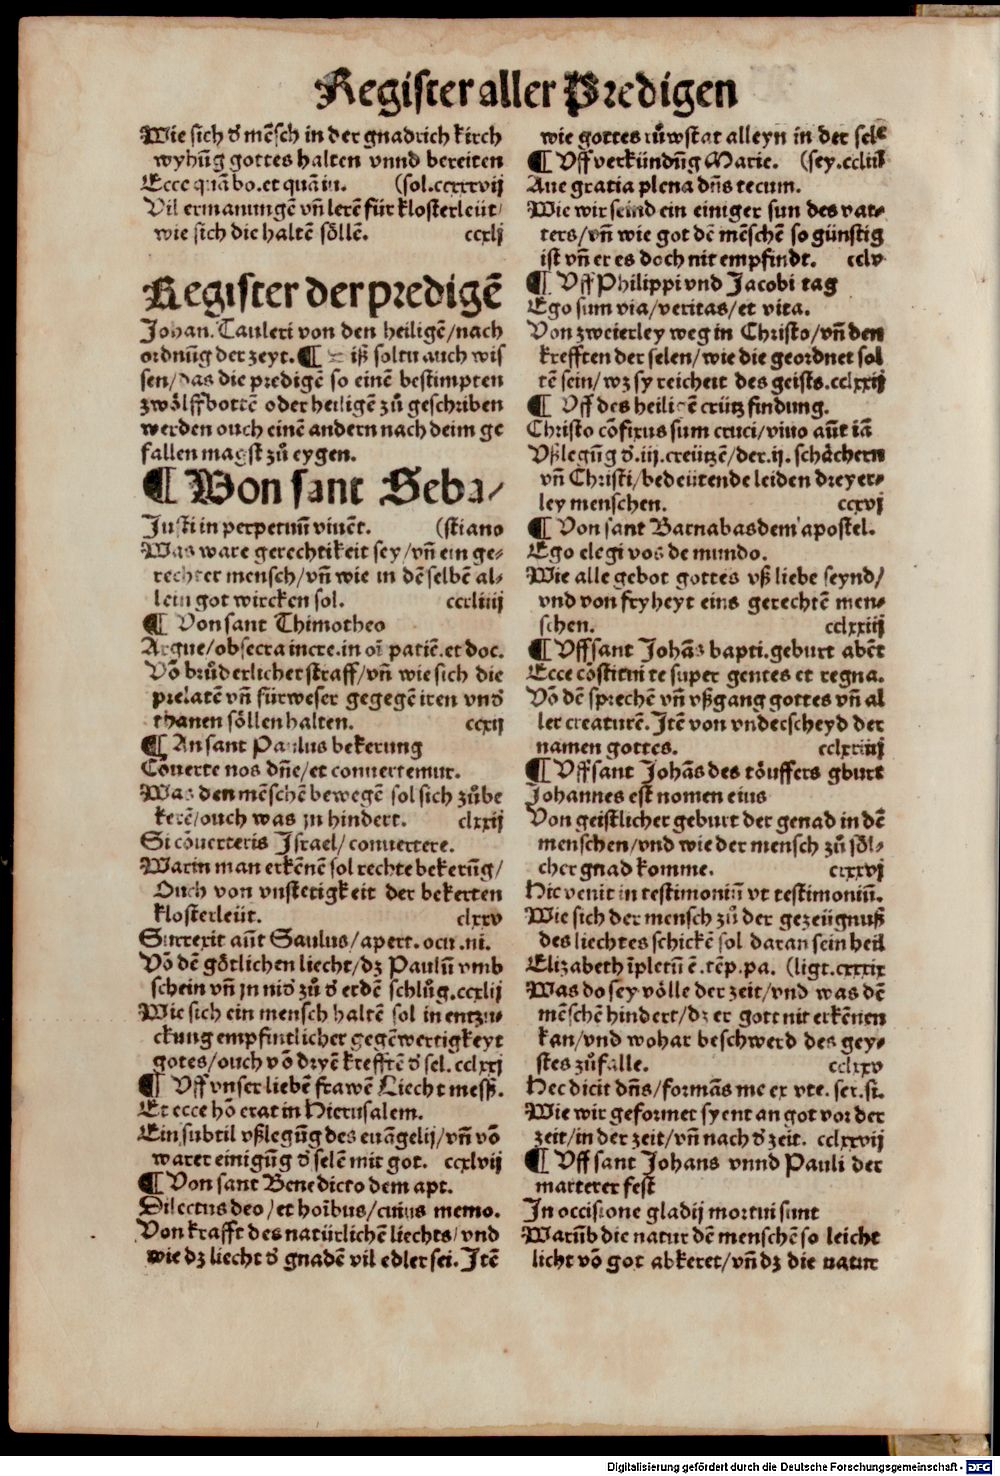 Register aller Predigen
Wie sich d̕ mēsch in der gnadrich kirch
wyhūg gottes halten vnnd bereiten
Ecce quā bo. et quā iu. (sol.ccxxxvij
Vil ermanungē vn̄ lerē für klosterleüt/
wie sich die haltē söllē. ccxlj
Register der predigē
Johan. Tauleri von den heiligē/nach
ordnūg der zeyt. ¶ iß soltu auch wis
sen/das die predigē so einē bestimpten
zwölffbottē oder heiligē zů geschriben
werden ouch einē andern nach deim ge
fallen magst zů eygen.
¶ Von sant Seba/
Justi in perpetuū viuēt. (stiano
Was ware gerechtikeit sey/vn̄ ein ge-
rechter mensch/vn̄ wie in dē selbē al-
lein got wircken sol. ccxliiij
¶ Von sant Thimotheo
Argue/obsecra incre.in oī patiē.et doc.
Vō brůderlicher straff/vn̄ wie sich die
prelatē vn̄ fürweser gegegē iren vnd̕
thanen söllen halten. ccxij
¶ An sant Paulus bekerung
Cōuerte nos dn̄e/et conuertemur.
Was den mēschē bewegē sol sich zůbe
kerē/ouch was jn hindert. clxxij
Si cōuerteris Israel/conuertere.
Warin man erkēnē sol rechte bekerūg/
Ouch von vnstetigkeit der bekerten
klosterleüt. clxxv
Surrexit aūt Saulus/apert. ocu .ni.
Vō dē götlichen liecht/dz Paulū vmb
schein vn̄ jn nid̕ zů d̕ erdē schlůg.ccxlij
Wie sich ein mensch haltē sol in entzu-
ckung empfintlicher gegēwertigkeyt
gotes/ouch vō dryē krefftē d̕ sel. cclxxj
¶ Vff vnser liebē frawē Liecht meß.
Et ecce hō erat in Hierusalem.
Ein subtil vßlegūg des euāgelij/vn̄ vō
warer einigūg d̕ selē mit got. ccxlvij
¶ Von sant Benedicto dem apt.
Dilectus deo/et hoībus/cuius memo.
Von krafft des natürlichē liechts/vnd
wie dz liecht d̕ gnadē vil edler sei. Jtē
wie gottes růwstat alleyn in der sele
¶ Vff verkündūg Marie. (sey.ccliiij
Aue gratia plena dn̄s tecum.
Wie wir seind ein einiger sun des vat-
ters/vn̄ wie got dē mēschē so günstig
ist vn̄ er es doch nit empfindt. cclv
¶ Vff Philippi vnd Jacobi tag
Ego sum via/veritas/et vita.
Von zweierley weg in Christo/vn̄ den
krefften der selen/wie die geordnet sol
tē sein/wz sy reicheit des geists.cclxxij
¶ Vff des heiligē crütz findung.
Christo cōfixus sum cruci/viuo aūt iā
Vßlegūg d̕.iij.creützē/der.ij.schächern
vn̄ Christi/bedeütende leiden dreyer-
ley menschen. ccxvj
¶ Von sant Barnabas dem apostel.
Ego elegi vos de mundo.
Wie alle gebot gottes vß liebe seynd/
vnd von fryheyt eins gerechtē men-
schen. cclxxiij
¶ Vff sant Johās bapti.geburt abēt
Ecce cōstitui te super gentes et regna.
Vō dē sprechē vn̄ vßgang gottes vn̄ al
ler creaturē. Jtē von vnderscheyd der
namen gottes. cclxxiiij
¶ Vff sant Johās des töuffers gburt
Johannes est nomen eius
Von geistlicher geburt der genad in dē
menschen/vnd wie der mensch zů söl-
cher gnad komme. cxxxvj
Hic venit in testimoniū vt testimoniū.
Wie sich der mensch zů der gezeügnuß
des liechtes schickē sol daran sein heil
Elizabeth īpletū ē.tēp.pa. (ligt.cxxxix
Was do sey völle der zeit/vnd was dē
mēschē hindert/dz er gott nit erkēnen
kan/vnd wohar beschwerd des gey-
stes zůfalle. cclxxv
Hec dicit dn̄s/formās me ex vte. ser.si.
Wie wir geformet syent an got vor der
zeit/in der zeit/vn̄ nach d̕ zeit. cclxxvij
¶ Vff sant Johans vnnd Pauli der
marterer fest
In occisione gladij mortui sunt
Warūb die natur dē menschē so leicht
licht vō got abkeret/vn̄ dz die natur
Digitalisierung gefördert durch die Deutsche Forschungsgemeinschaft - DFG